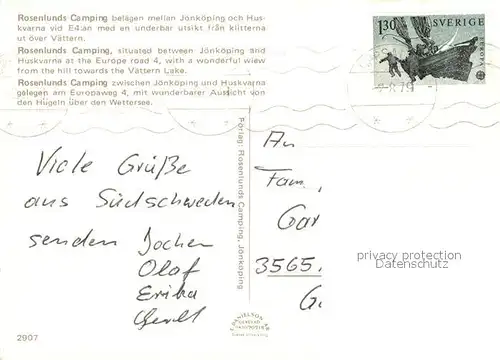 Rosenlunds Camping belägen mellan Jönköping och Hus-
kvarna vid E4:an med en underbar utsikt från klitterna
ut över Vättern.
Rosenlunds Camping, situated between Jönköping and
Huskvarna at the Europe road 4, with a wonderful view
from the hill towards the Vättern Lake.
Rosenlunds Camping zwischen Jönköping und Huskvarna
gelegen am Europaweg 4, mit wunderbarer Aussicht von
den Hügeln über den Wettersee.
130 SVERIGE
EUROPA
Viele Grüße
aus Südschweden
senden Jochen
Olaf
Erika
Förlag: Rosenlunds Camping, Jönköping
An
Fam.
Gar
3565
privacy protection
Datenschutz
2907